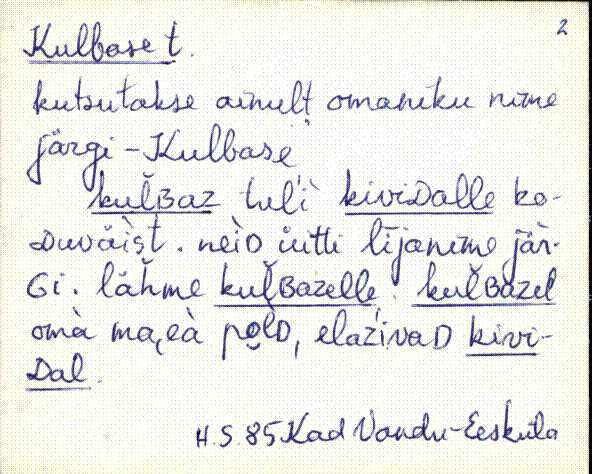 2
Kulbase t.
kutsutakse ainult omaniku nime
järgi - Kulbase
kuľ̆ʙaz tuĺi kiviᴅalle ko-
ᴅuväìst. neiᴅ üitti lījanime jär-
ɢi. läh̆me kuľ̆ʙazelle. kuľ̆ʙazel
omà ma,eà pǫlᴅ, elaźivaᴅ kivi-
ᴅal.
H.S. 85 Kad Vandu-Eeskula